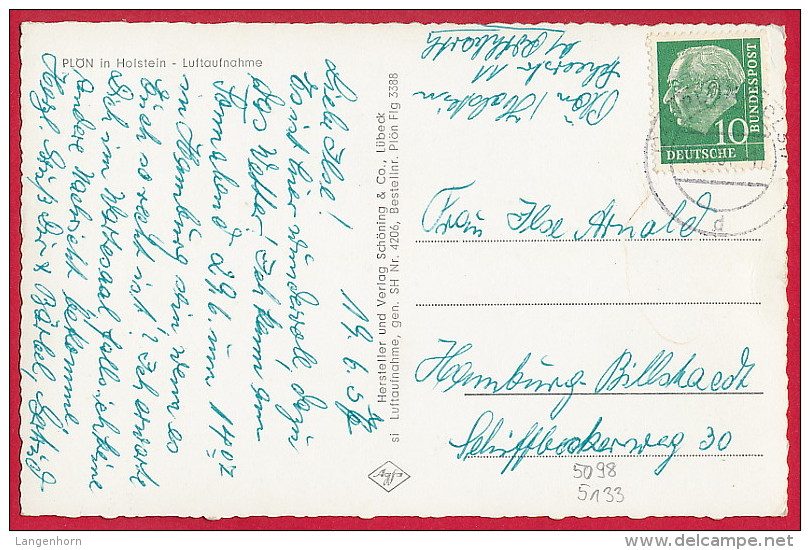 PLÖN in Holstein - Luftaufnahme
19. 6. 57
Liebe Ilse!
Es ist hier wundervoll, dazu
das Wetter! Ich kann am
Sonnabend 29.6. um 1407
in Hamburg sein wenn es
Dich so recht ist? Ich erwarte
Dich im Wartesaal falls ich keine
andere Nachricht bekomme
Herzl. Grüße
Hersteller und Verlag Schöning & Co., Lübeck
si Luftaufnahme, gen. SH Nr. 4206, Bestellnr. Plön Flg 3388
Agfa
Plön / Holstein
11
DEUTSCHE
BUNDESPOST
10
d
Frau Ilse Arnold
Hamburg-Billstedt
Schiffbeckerweg 30
5098
5133
Langenhorn
www.delcampe.net